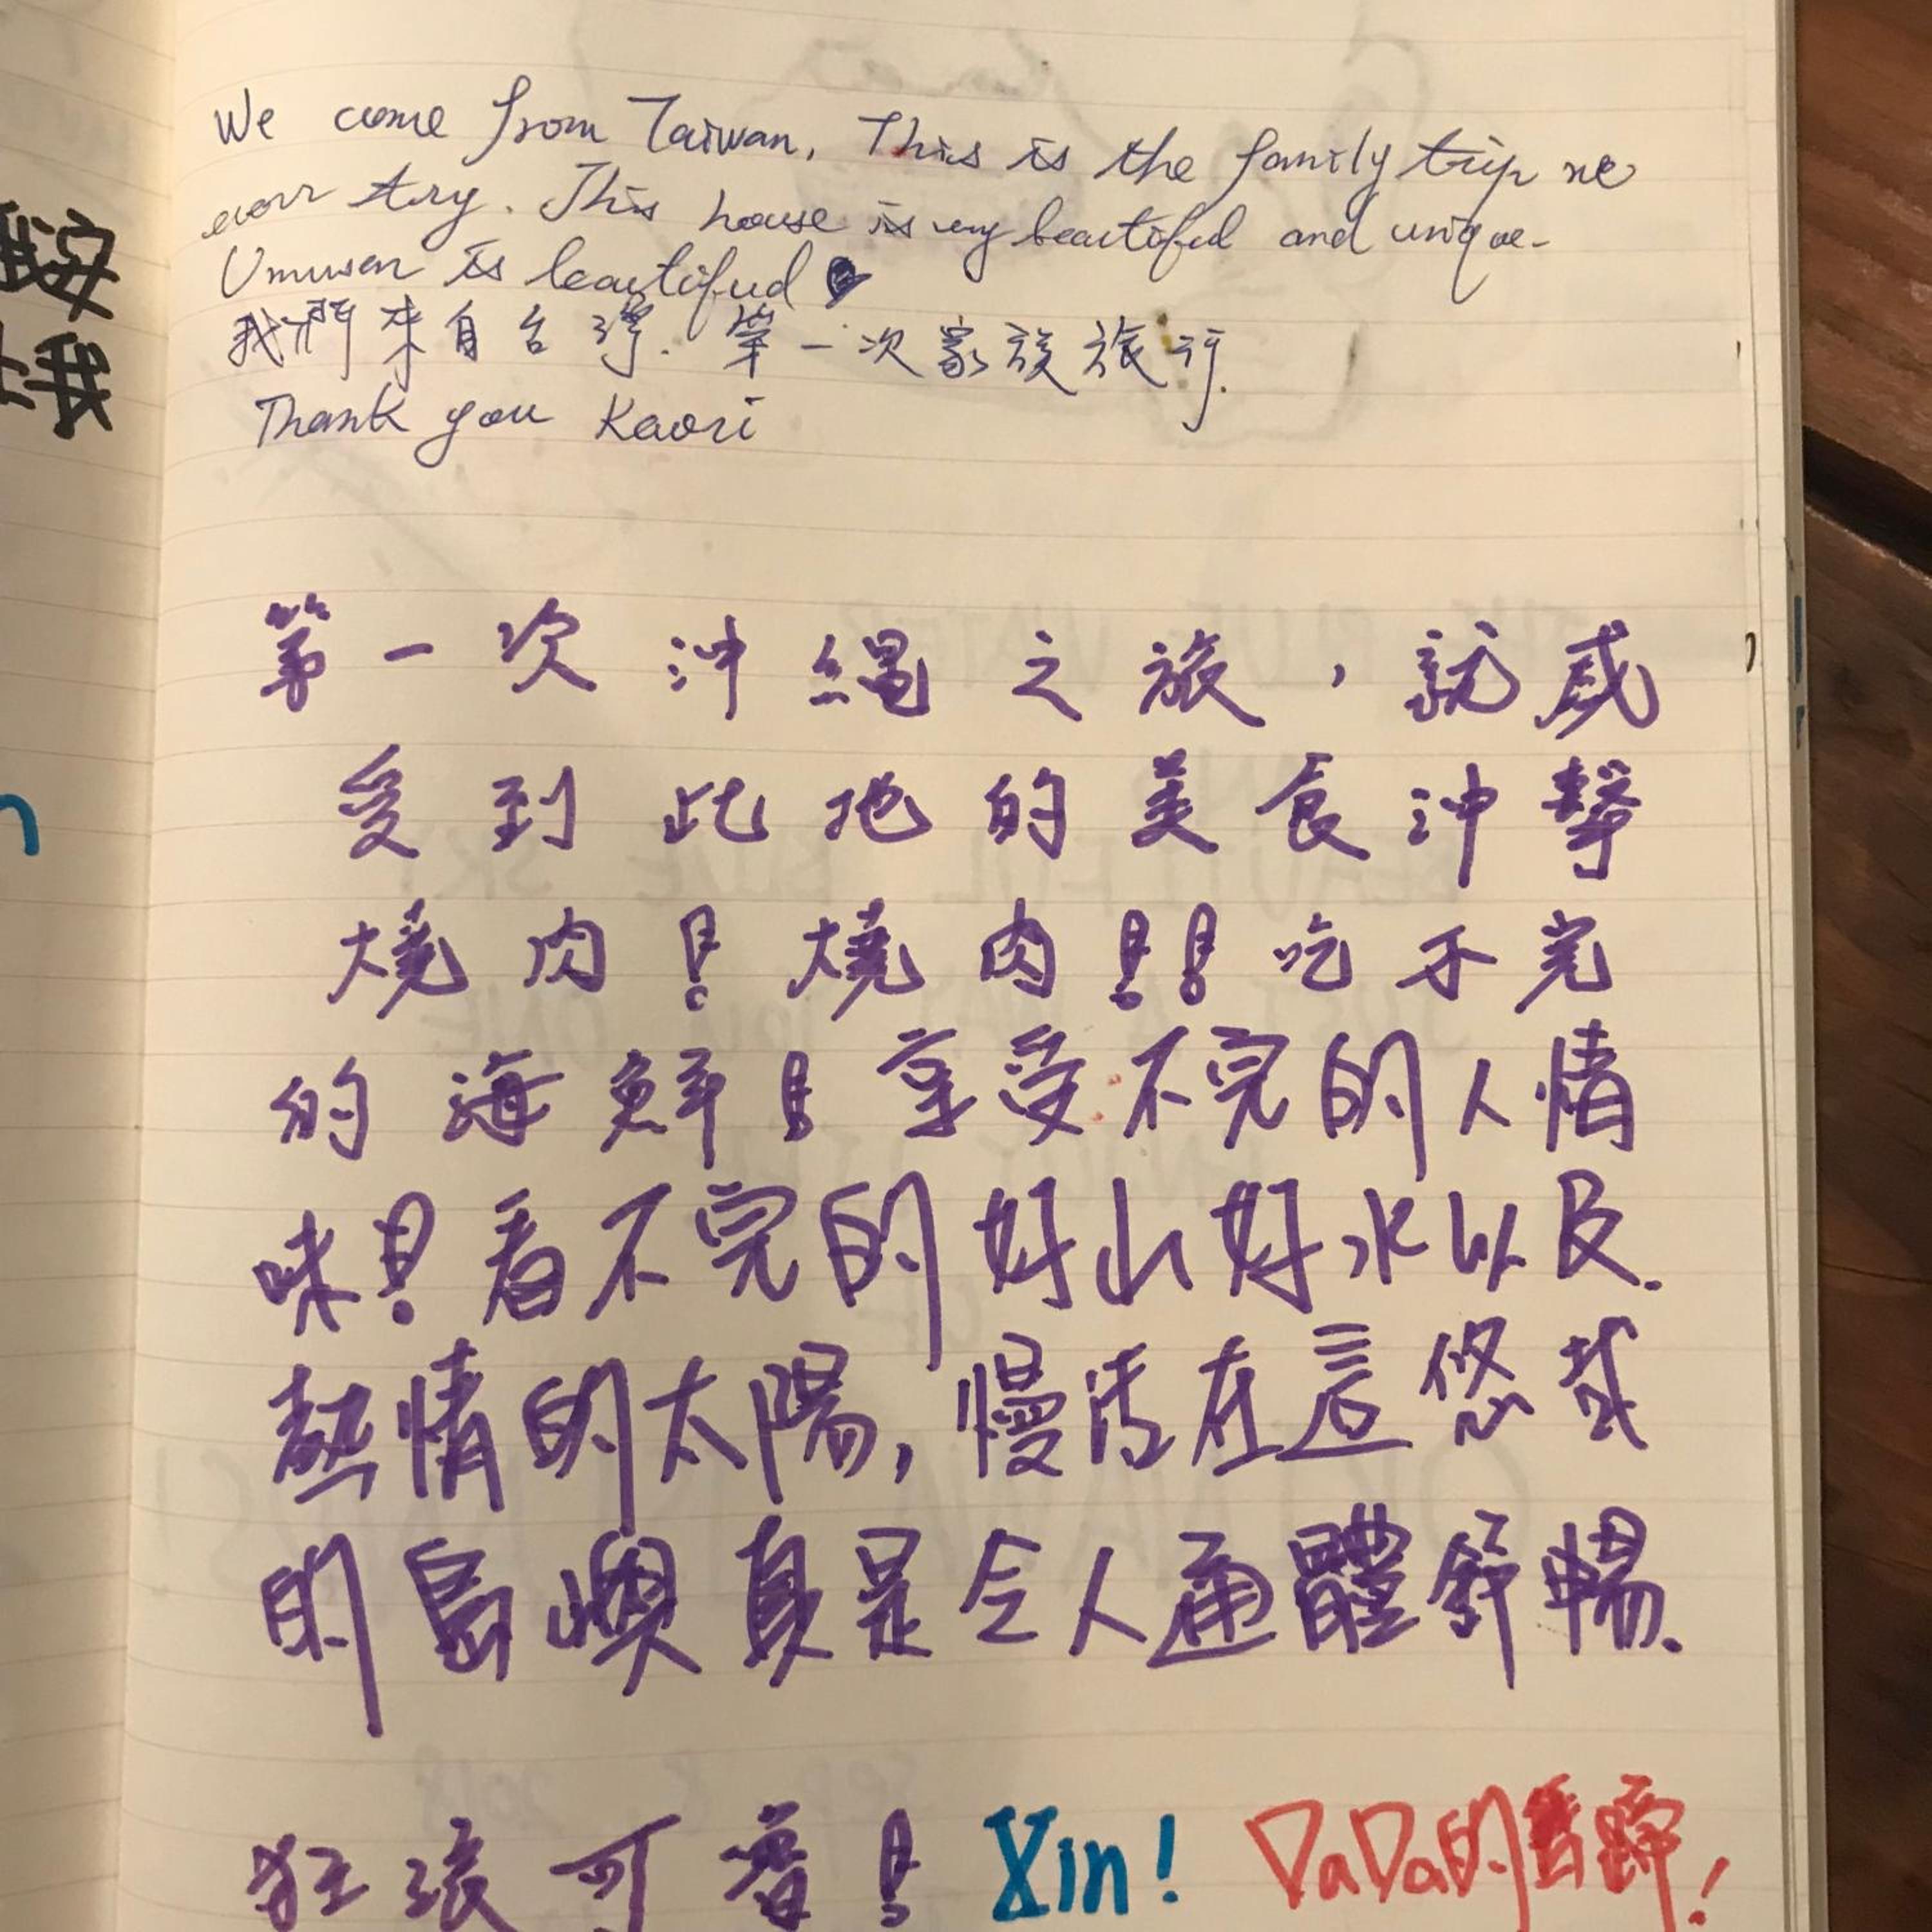 我安
上我
We come from Taiwan, This is the family trip we
ever try. This house is very beautiful and unique.
Umusun is beautiful
我們來自台灣. 第一次家族旅行.
Thank you Kaori
第一次沖繩之旅，就感
受到此地的美食沖擊
燒肉！燒肉！！吃不完
的海鮮！享受不完的人情
味！看不完的好山好水以及.
熱情的太陽，慢活在這悠哉
的島嶼真是令人通體舒暢.
狂浪可睿！ Xin! DaDa的